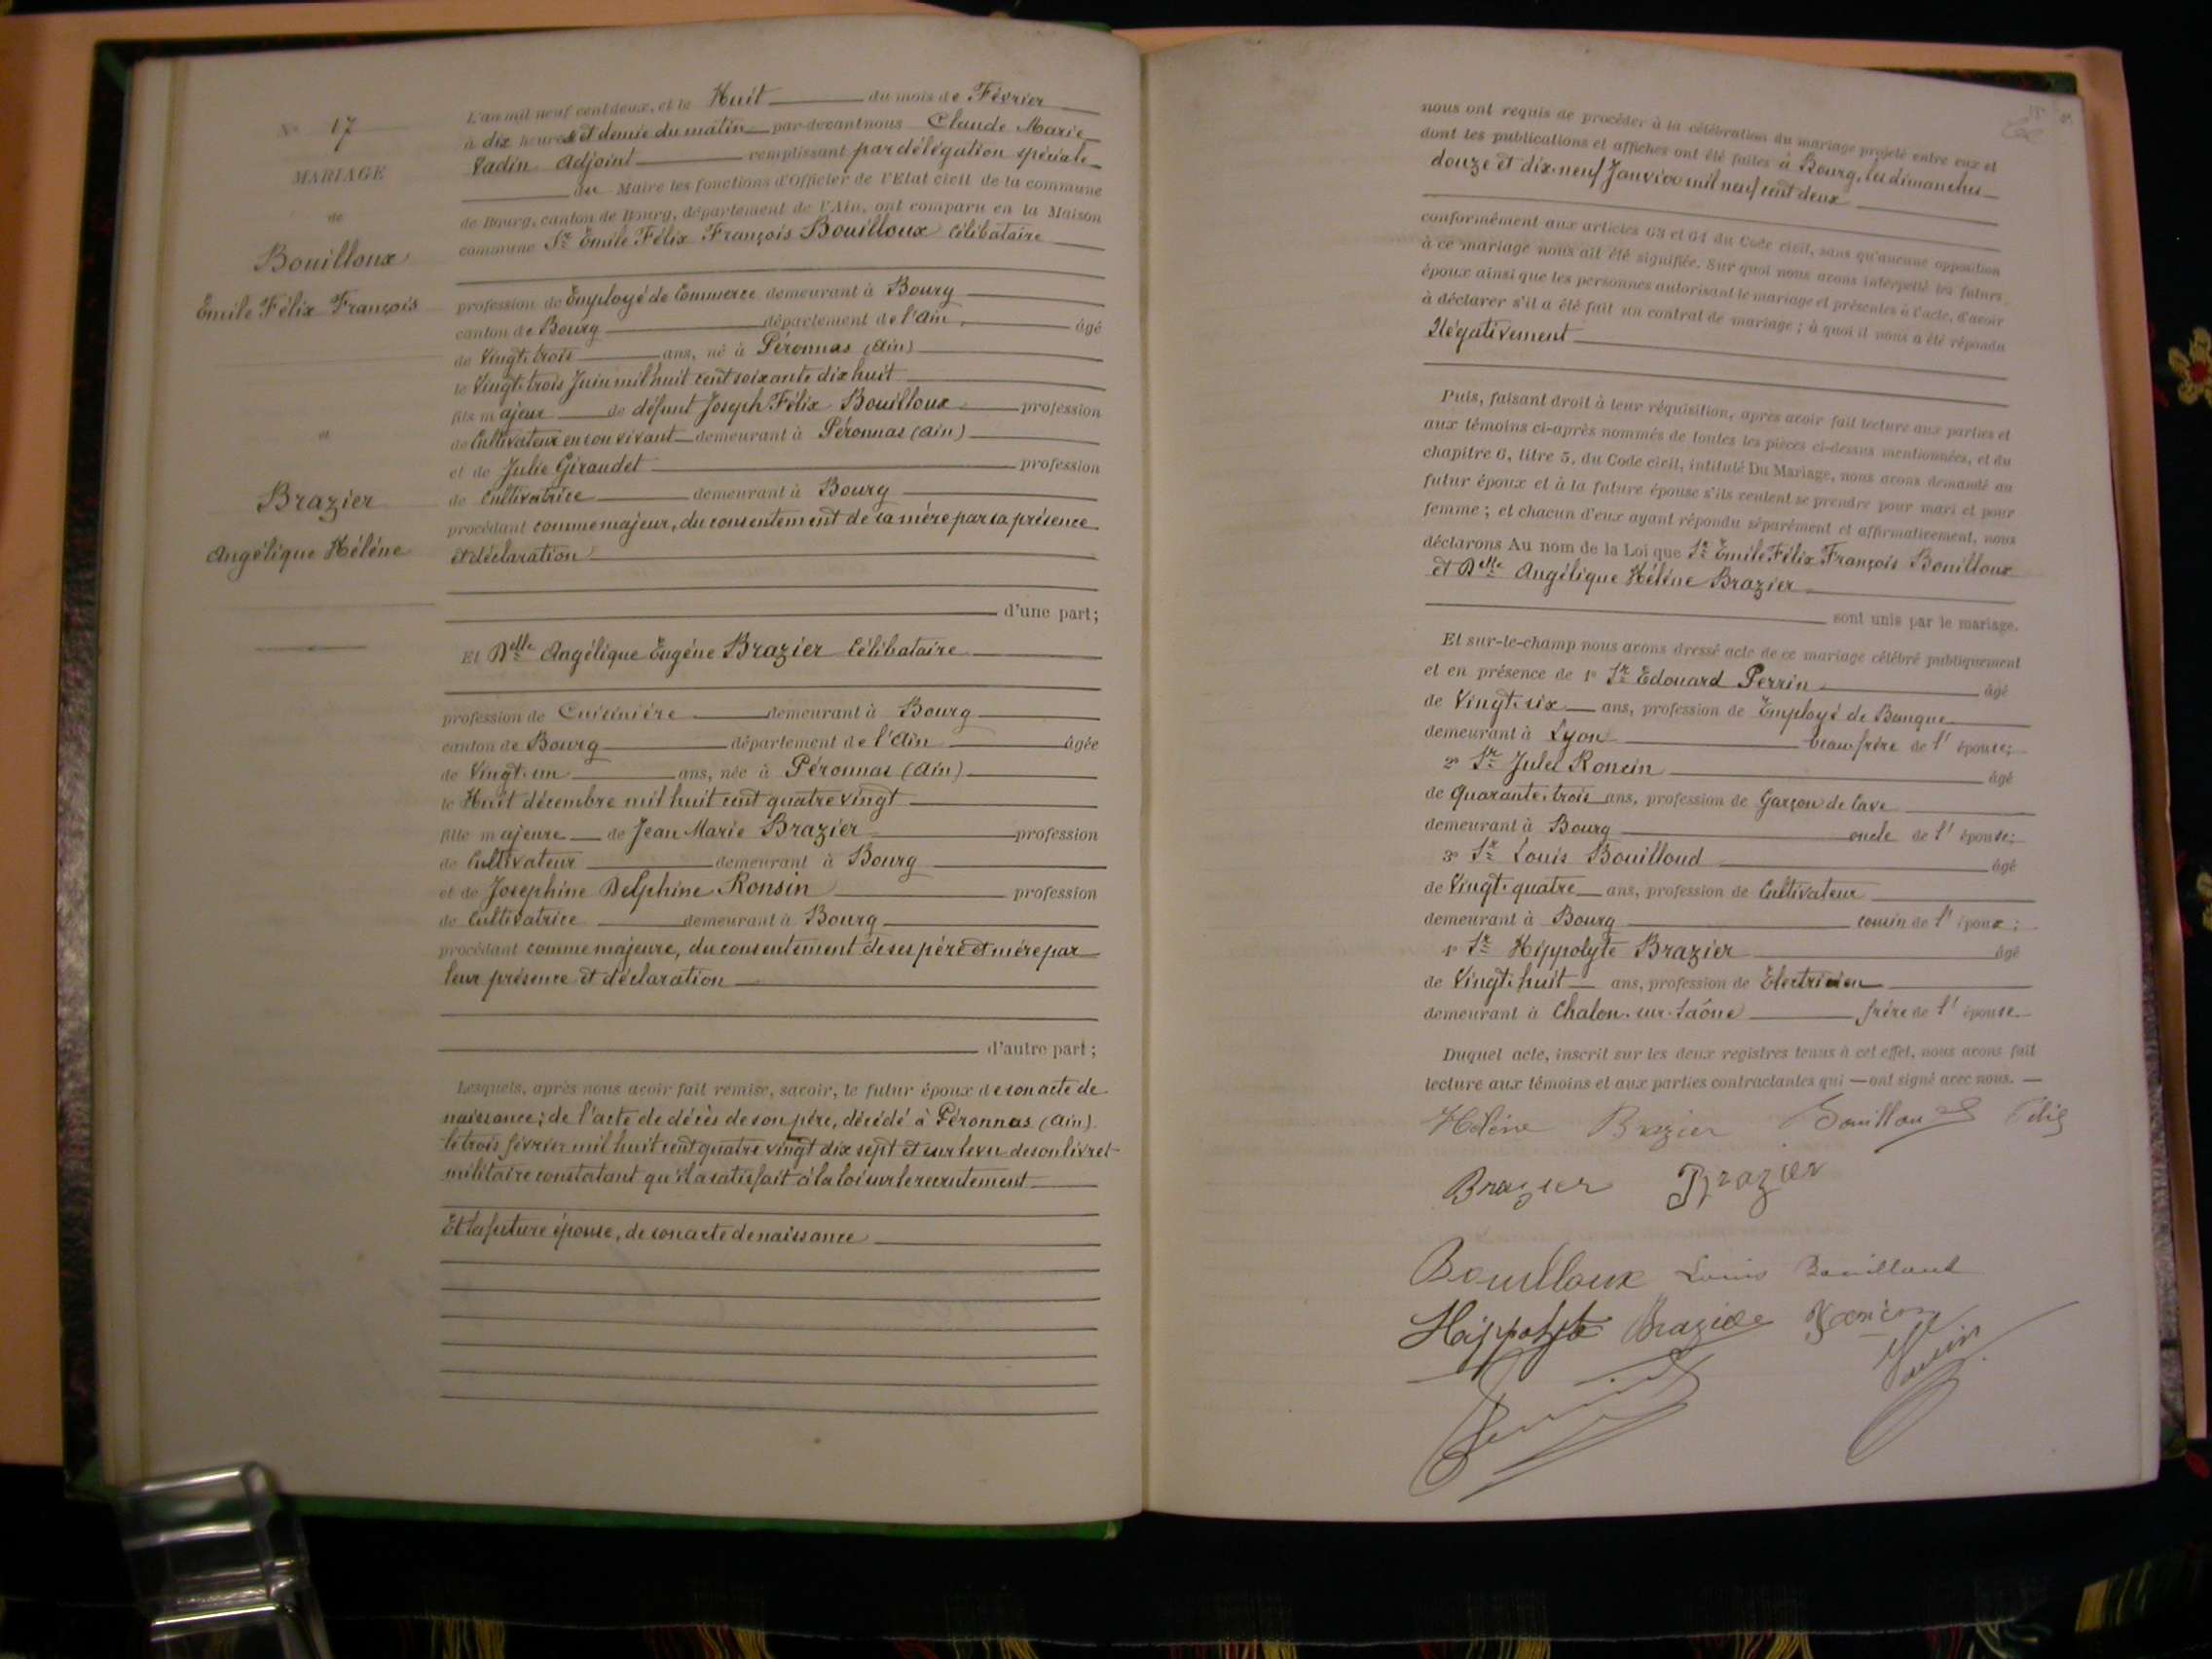 N° 17
MARIAGE
de
Bouilloux
Emile Félix François
et
Brazier
Angélique Héléne
L'an mil neuf cent deux, et le Huit du mois de Février
à dix heures et demie du matin par-devant nous Claude Marie
Vadin Adjoint remplissant par délégation spéciale
du Maire les fonctions d'Officier de l'Etat civil de la commune
de Bourg, canton de Bourg, département de l'Ain, ont comparu en la Maison
commune Sr Emile Félix François Bouilloux célibataire
profession de Employé de Commerce demeurant à Bourg
canton de Bourg département de l'Ain, âgé
de Vingt-trois ans, né à Péronnas (Ain)
le Vingt-trois Juin mil huit cent soixante dix huit
fils majeur de défunt Joseph Félix Bouilloux profession
de Cultivateur en son vivant demeurant à Péronnas (Ain)
et de Julie Giraudet profession
de Cultivatrice demeurant à Bourg
procédant comme majeur, du consentement de sa mère par sa présence
et déclaration
d'une part;
Et Delle Angélique Eugéne Brazier Célibataire
profession de Cuisinière demeurant à Bourg
canton de Bourg département de l'Ain âgée
de Vingt-un ans, née à Péronnas (Ain)
le Huit décembre mil huit cent quatre vingt
fille majeure de Jean Marie Brazier profession
de Cultivateur demeurant à Bourg
et de Josephine Delphine Ronsin profession
de Cultivatrice demeurant à Bourg
procédant comme majeure, du consentement de ses père et mère par
leur présence et déclaration
d'autre part;
Lesquels, après nous avoir fait remise, savoir, le futur époux de son acte de
naissance; de l'acte de décès de son père, décédé à Péronnas (Ain)
le trois février mil huit cent quatre vingt dix sept et sur le vu de son livret
militaire constatant qu'il a satisfait à la loi sur le recrutement
Et la future épouse, de son acte de naissance
nous ont requis de procéder à la célébration du mariage projeté entre eux et
dont les publications et affiches ont été faites à Bourg, les dimanches
douze et dix-neuf Janvier mil neuf cent deux
conformément aux articles 63 et 64 du Code civil, sans qu'aucune opposition
à ce mariage nous ait été signifiée. Sur quoi nous avons interpellé les futurs
époux ainsi que les personnes autorisant le mariage et présentes à l'acte, d'avoir
à déclarer s'il a été fait un contrat de mariage; à quoi il nous a été répondu
Négativement
Puis, faisant droit à leur réquisition, après avoir fait lecture aux parties et
aux témoins ci-après nommés de toutes les pièces ci-dessus mentionnées, et du
chapitre 6, titre 5, du Code civil, intitulé Du Mariage, nous avons demandé au
futur époux et à la future épouse s'ils veulent se prendre pour mari et pour
femme; et chacun d'eux ayant répondu séparément et affirmativement, nous
déclarons Au nom de la Loi que Sr Emile Félix François Bouilloux
et Delle Angélique Héléne Brazier
sont unis par le mariage.
Et sur-le-champ nous avons dressé acte de ce mariage célébré publiquement
et en présence de 1° Sr Edouard Perrin âgé
de Vingt-six ans, profession de Employé de Banque
demeurant à Lyon beau frère de l'épouse;
2° Sr Jules Roncin âgé
de Quarante-trois ans, profession de Garçon de Cave
demeurant à Bourg oncle de l'épouse;
3° Sr Louis Bouilloud âgé
de Vingt-quatre ans, profession de Cultivateur
demeurant à Bourg cousin de l'époux;
4° Sr Hippolyte Brazier âgé
de Vingt-huit ans, profession de Electricien
demeurant à Chalon-sur-Saône frère de l'épouse
Duquel acte, inscrit sur les deux registres tenus à cet effet, nous avons fait
lecture aux témoins et aux parties contractantes qui ont signé avec nous.
Héléne Brazier Bouilloux Félix
Brazier Brazier
Bouilloux Louis Bouilloud
Hippolyte Brazier